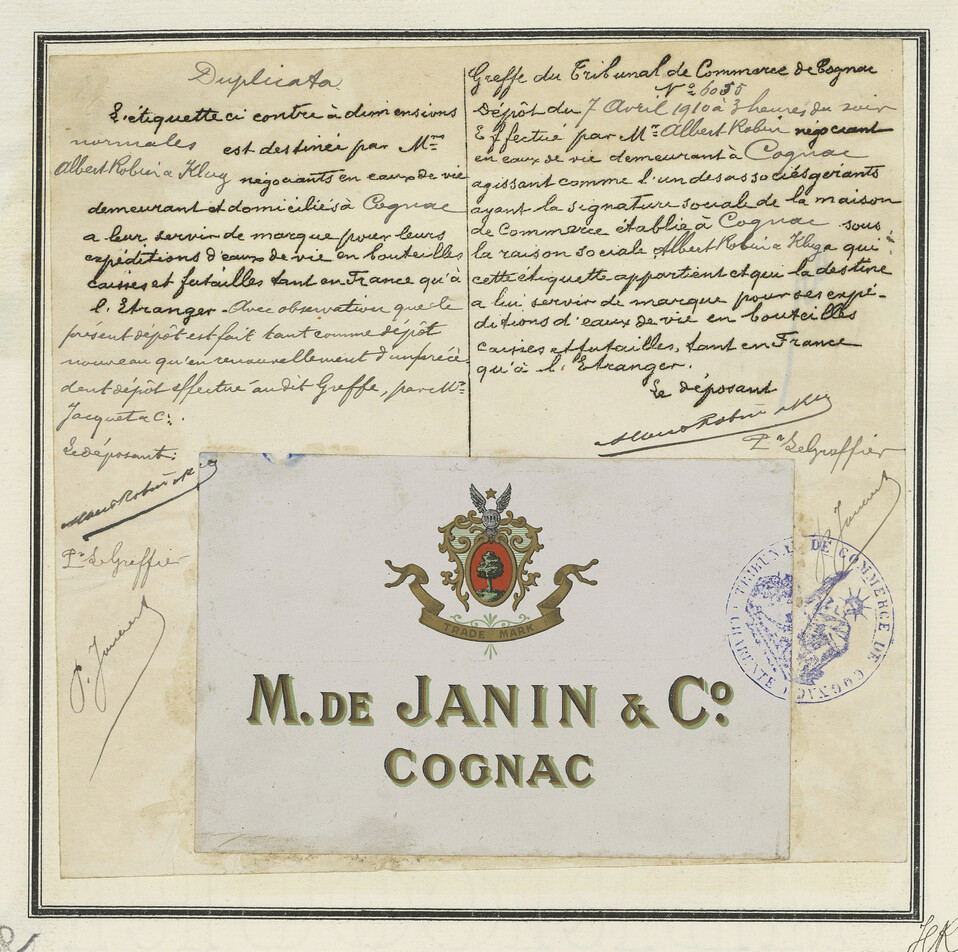 Duplicata
L'étiquette ci contre à dimensions
normales est destinée par Mrs
Albert Robin & Klug négociants en eaux de vie
demeurant et domiciliés à Cognac
a leur servir de marque pour leurs
expéditions d'eaux de vie en bouteilles
caisses et futailles tant en France qu'à
l'Etranger. Avec observation que le
présent dépôt est fait tant comme dépôt
nouveau qu'en renouvellement d'un précé-
dent dépôt effectué au dit Greffe, par Mrs
Jacquet & Cie.
Le déposant:
Albert Robin & Klug
Pr Le Greffier
Greffe du Tribunal de Commerce de Cognac
No 6055
Dépôt du 7 Avril 1910 à 3 heures du soir
Effectué par Mr Albert Robin négociant
en eaux de vie demeurant à Cognac
agissant comme l'un des associés gérants
ayant la signature sociale de la maison
de Commerce établie à Cognac sous
la raison sociale Albert Robin & Klug a qui
cette étiquette appartient et qui la destine
a lui servir de marque pour ses expé-
ditions d'eaux de vie en bouteilles
caisses et futailles, tant en France
qu'à l'Etranger.
Le déposant
Albert Robin & Klug
Pr Le Greffier
TRADE MARK
M. DE JANIN & Co.
COGNAC
TRIBUNAL DE COMMERCE DE COGNAC
CHARENTE